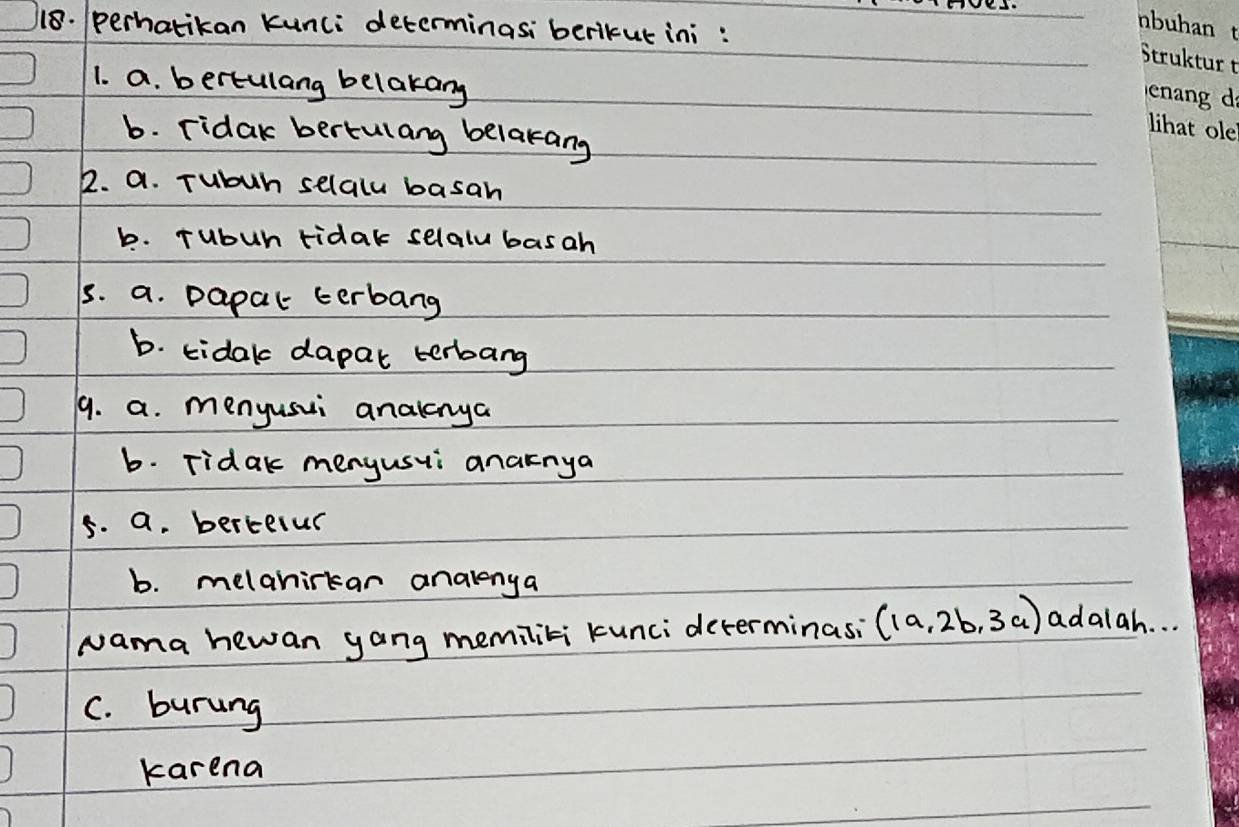 18. perhatikan kunci determinasi berikut ini :
1. a. bertulang belakang
b. Tidak bertulang belakang
2. a. Tubuh selalu basah
b. Tubuh tidak selalu basah
3. a. Dapat terbang
b. tidak dapat terbang
4. a. menyusui anaknya
b. Tidak menyusui anaknya
5. a. bertelur
b. melahirkan anaknya
Nama hewan yang memiliki kunci determinasi (1a, 2b, 3a) adalah...
C. burung
karena
nbuhan t
Struktur t
enang da
lihat ole